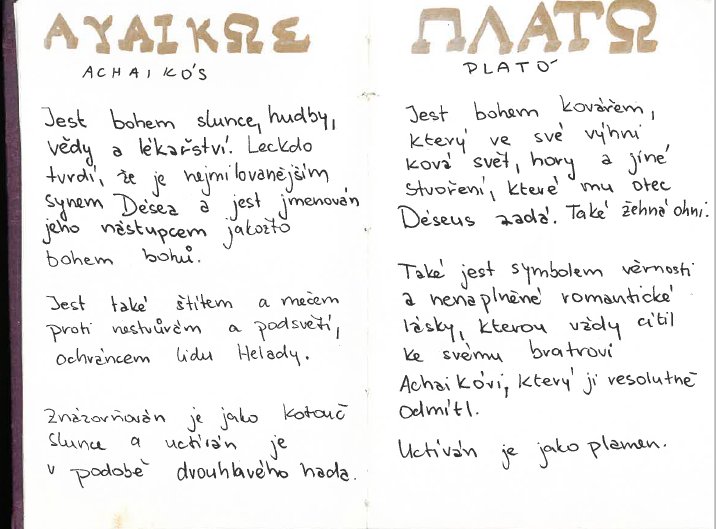 ΑΥΑΙΚΩΣ
ACHAIKÓS
Jest bohem slunce, hudby,
vědy a lékařství. Leckdo
tvrdí, že je nejmilovanějším
synem Désea a jest jmenován
jeho nástupcem jakožto
bohem bohů.
Jest také štítem a mečem
proti nestvůrám a podsvětí,
ochráncem lidu Helady.
Znázorňován je jako kotouč
slunce a uctíván je
v podobě dvouhlavého hada.
ΠΛΑΤΩ
PLATÓ
Jest bohem kovářem,
který ve své výhni
ková svět, hory a jiné
stvoření, které mu otec
Déseus zadá. Také žehná ohni.
Také jest symbolem věrnosti
a nenaplněné romantické
lásky, kterou vždy cítil
ke svému bratrovi
Achaikóvi, který ji resolutně
odmítl.
Uctíván je jako plamen.